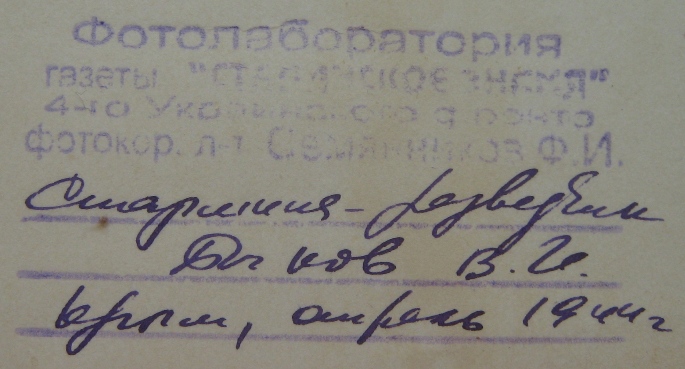 Фотолаборатория
газеты "СТАЛИНСКОЕ ЗНАМЯ"
4-го Украинского фронта
фотокор. л-т Семянников Ф.И.
Старшина-разведчик
Бычков В.И.
Крым, апрель 1944 г